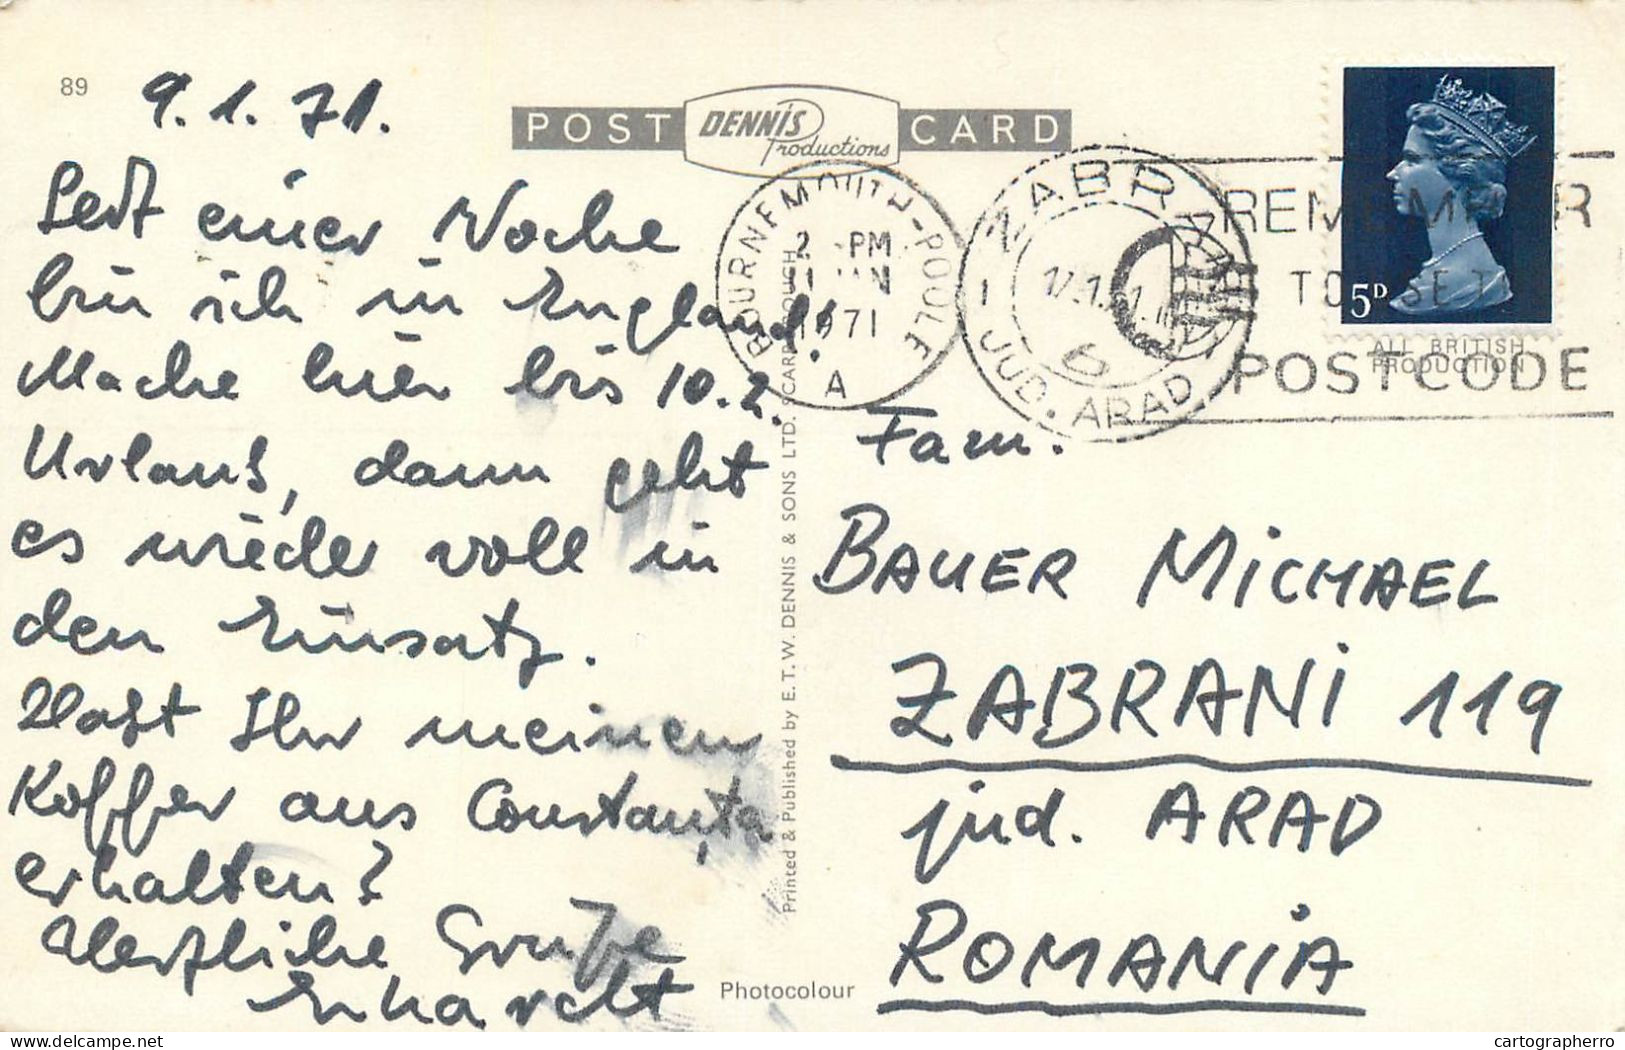 89
9.1.71.
POST DENNIS Productions CARD
Seit einer Woche
bin ich in England!
Mache hier bis 10.2.
Urlaub, dann geht
es wieder voll in
den Einsatz.
Habt Ihr meinen
Koffer aus Constanța
erhalten?
Herzliche Grüße
Erhardt
BOURNEMOUTH-POOLE
2 - PM
11 JAN
1971
A
ZABRANI
JUD. ARAD
6
REMEMBER
TO USE THE
POSTCODE
5D
ALL BRITISH
PRODUCTION
Printed & Published by E. T. W. DENNIS & SONS LTD. SCARBOROUGH
Photocolour
Fam.
BAUER MICHAEL
ZABRANI 119
jud. ARAD
ROMANIA
cartographerro